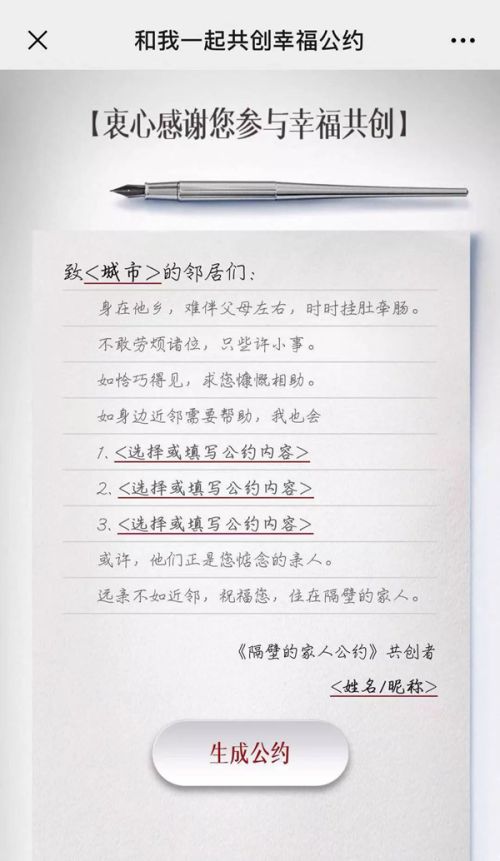 和我一起共创幸福公约
【衷心感谢您参与幸福共创】
致<城市>的邻居们：
身在他乡，难伴父母左右，时时挂肚牵肠。
不敢劳烦诸位，只些许小事。
如恰巧得见，求您慷慨相助。
如身边近邻需要帮助，我也会
1. <选择或填写公约内容>
2. <选择或填写公约内容>
3. <选择或填写公约内容>
或许，他们正是您惦念的亲人。
远亲不如近邻，祝福您，住在隔壁的家人。
《隔壁的家人公约》共创者
<姓名/昵称>
生成公约